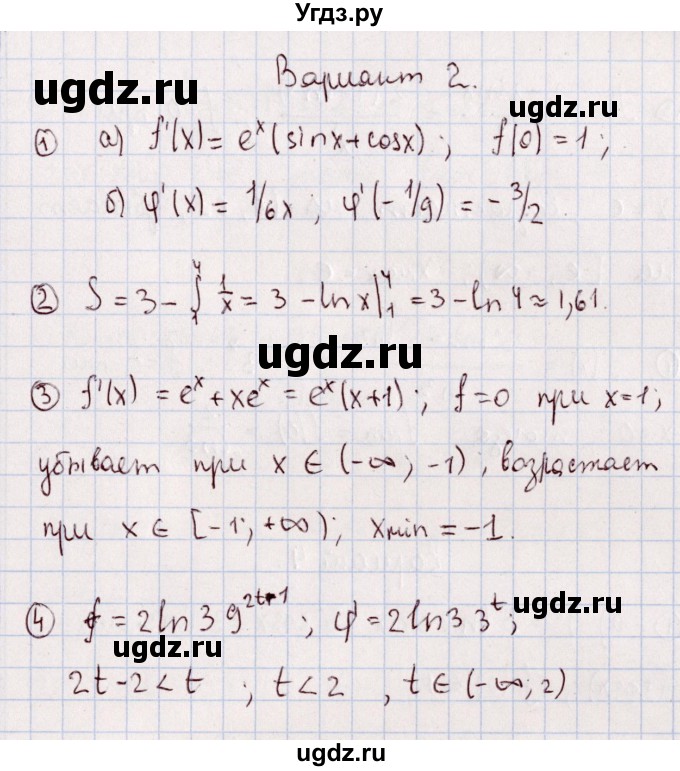 Угдз.ру
Вариант 2.
ugdz.ru
ugdz.ru
① а) f'(x) = e^x (sinx + cosx) ; f(0) = 1 ;
б) φ'(x) = 1/6x ; φ'(-1/9) = -3/2.
② S = 3 - ∫₁⁴ 1/x = 3 - lnx|₁⁴ = 3 - ln 4 ≈ 1,61.
ugdz.ru
③ f'(x) = e^x + xe^x = e^x (x+1) ; f=0 при x=1 ;
убывает при x ∈ (-∞; -1) ; возрастает
при x ∈ [-1; +∞) ; xmin = -1.
ugdz.ru
④ f = 2ln3 9^{2t-1} ; φ' = 2ln3 3^t ;
ugdz.ru
2t-2 < t ; t < 2 , t ∈ (-∞; 2)
ugdz.ru